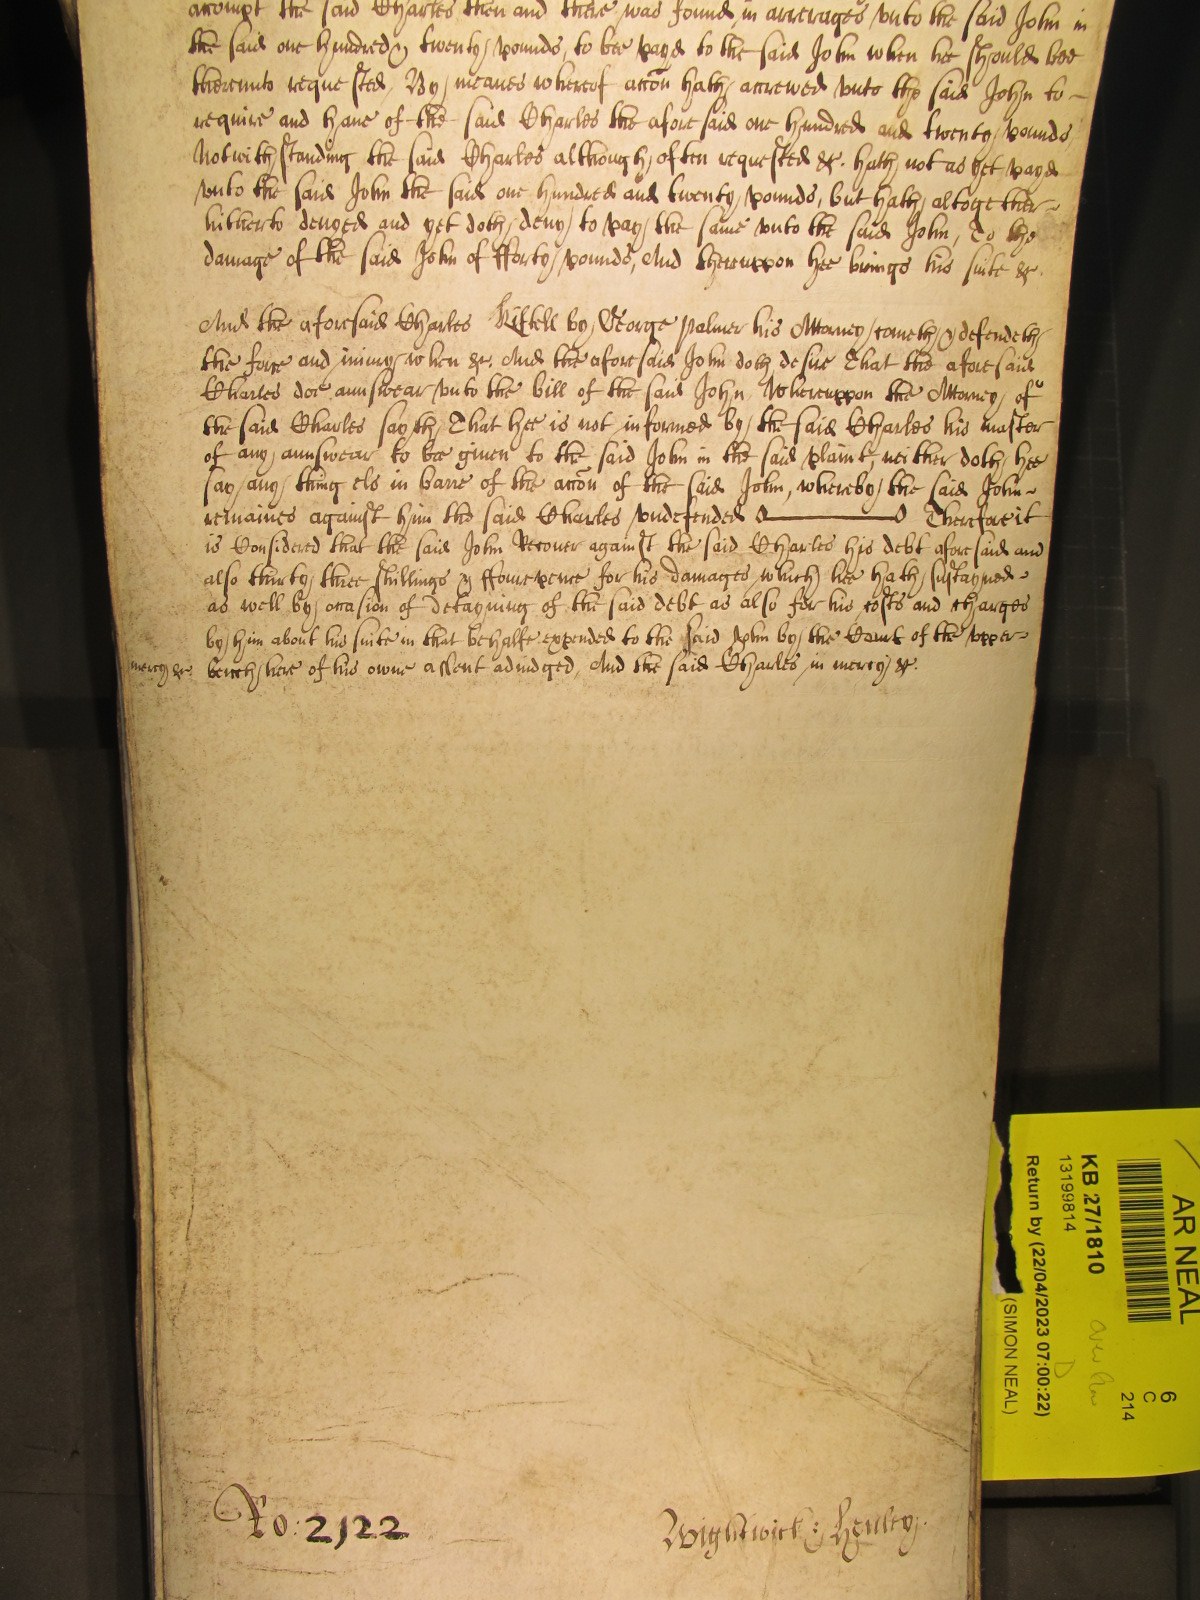 accompt the said Charles then and there was found in arrerages vnto the said John in
the said one hundred & twenty pounds, to bee payd to the said John when hee should bee
therevnto requested, By meanes whereof accōn hath accrewed vnto the said John to
require and haue of the said Charles the aforesaid one hundred and twenty pounds
Notwithstanding the said Charles although often requested &c. hath not as yet payd
vnto the said John the said one hundred and twenty pounds, but hath altogether
hitherto denyed and yet doth deny to pay the same vnto the said John, To the
damage of the said John of fforty pounds, And therevppon hee brings his suite &c.
And the aforesaid Charles by George Palmer his Attorney cometh & defendeth
the force and iniury when &c. And the aforesaid John doth desire That the aforesaid
Charles doe aunswear vnto the bill of the said John, Wherevppon the Attorney of
the said Charles sayth, That hee is not informed by the said Charles his master
of any aunswear to bee giuen to the said John in the said plaint, neither doth hee
say any thing els in barre of the accōn of the said John, whereby the said John
remaines against him the said Charles vndefended Therefore it
is Considered that the said John Recouer against the said Charles his debt aforesaid and
also thirty three shillings & ffourepence for his damages which hee hath sustayned
as well by occasion of detayning of the said debt as also for his costs and charges
by him about his suite in that behalfe expended to the said John by the Court of the vpper
mercy &c. bench here of his owne assent adiudged, And the said Charles in mercy &c.
Ro: 2122
Wightwick: Henley.
AR NEAL
KB 27/1810
13199814
Return by (22/04/2023 07:00:22)
(SIMON NEAL)
6
C
214